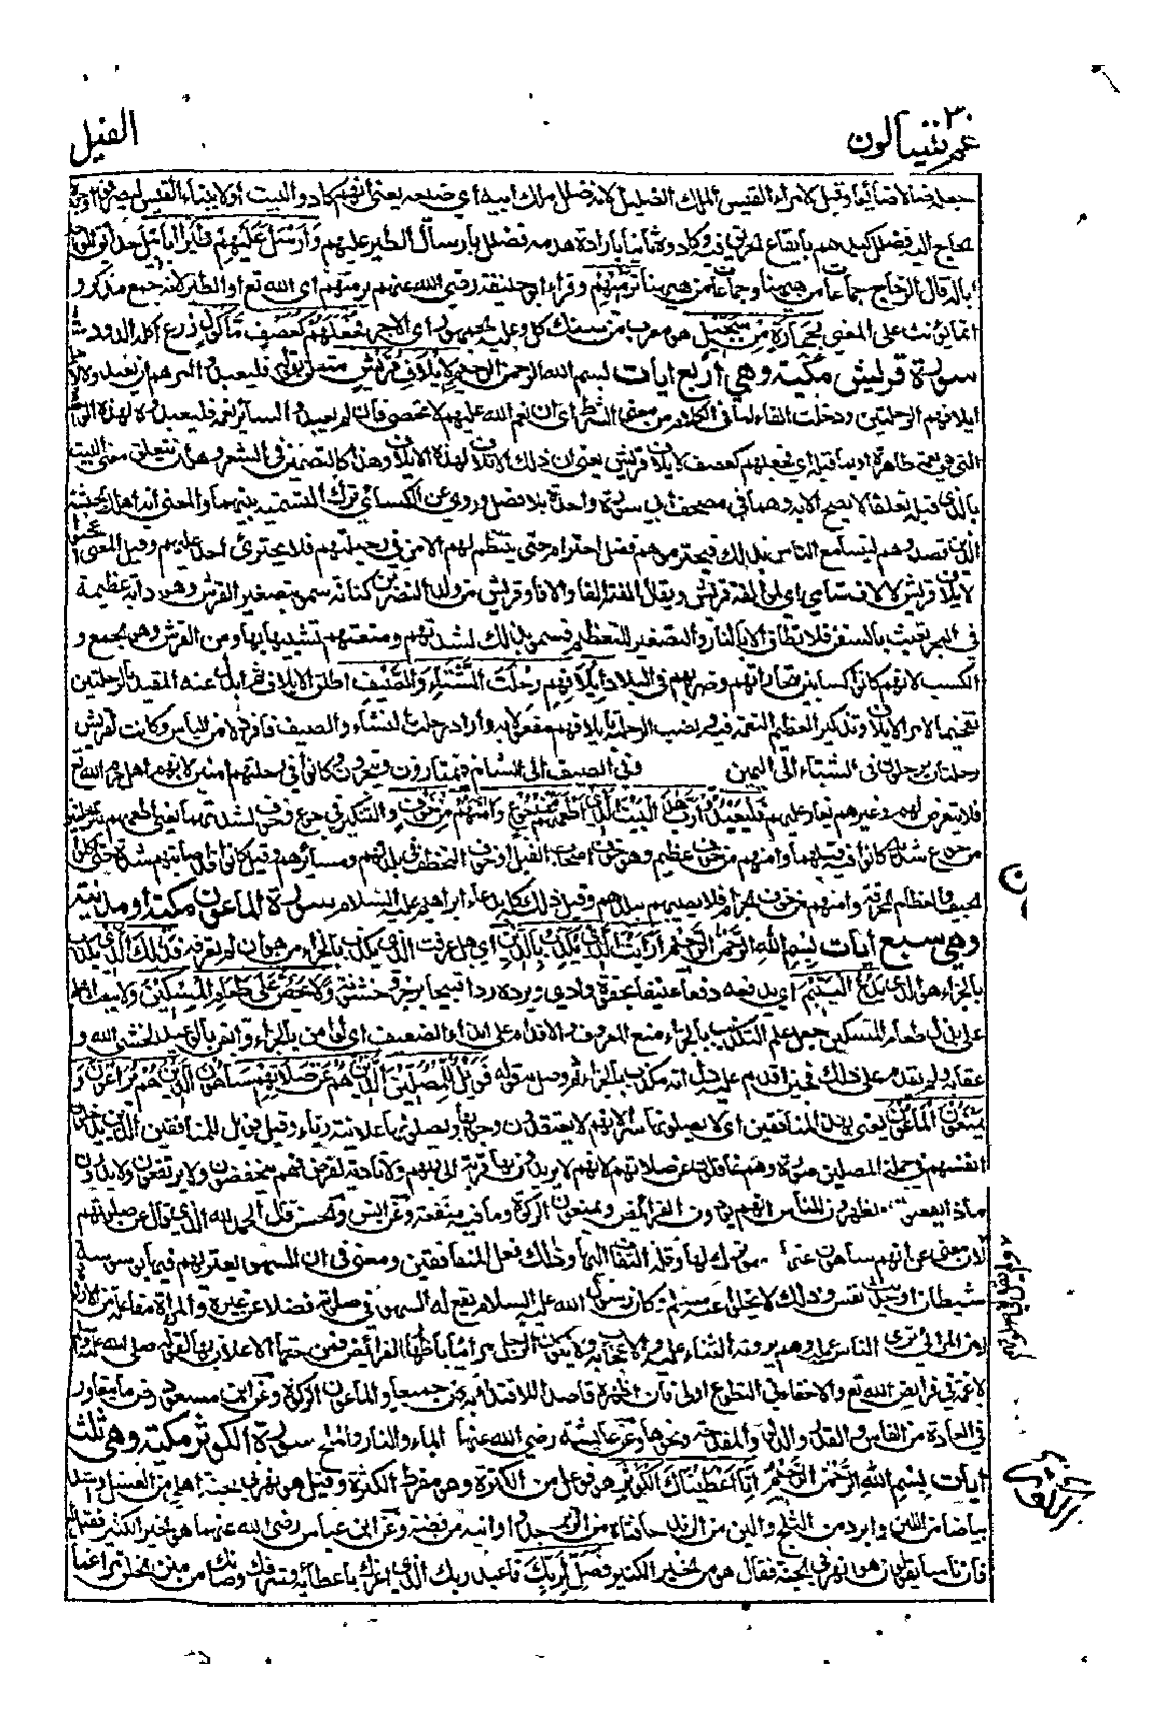 عم يتساءلون ٣٠
الفيل
ضل ضلالا ضائعا وقيل لامرئ القيس الملك الضليل لانه ضلل ملك ابيه اى ضيعه يعنى انهم كادوا البيت اولا ببناء القليس ليصرفوا وجوه
الحاج اليه فضلل كيدهم بايقاع الحريق فيه وكادوه ثانيا بارادة هدمه فضلل بارسال الطير عليهم وَاَرْسَلَ عَلَيْهِمْ طَيْرًا اَبَابِيلَ
ابالة قال الزجاج جماعات من ههنا وجماعات من ههنا تَرْمِيهِمْ وقرأ ابو حنيفة رضى الله عنه يرميهم اى الله تع او الطير لانه جمع مذكر و
انما يؤنث على المعنى بِحِجَارَةٍ مِنْ سِجِّيلٍ هو معرب من سنك كل وعليه الجمهور اى الاجر فَجَعَلَهُمْ كَعَصْفٍ مَأْكُولٍ زرع اكله الدود
سورة قريش مكية وهي أربع ايات بسم الله الرحمن الرحيم لِاِيلَافِ قُرَيْشٍ متعلق بقوله فليعبدوا امرهم ان يعبدوه لاجل
ايلافهم الرحلتين ودخلت الفاء لما فى الكلام من معنى الشرط اى ان نعم الله عليهم لا تحصى فان لم يعبدوه لسائر نعمه فليعبدوه لهذه الواحدة
التى هى نعمة ظاهرة او بما قبله اى فجعلهم كعصف لايلاف قريش يعنى ان ذلك الاتلاف لهذا الايلاف وهذا كالتضمين فى الشعر وهو ان يتعلق معنى البيت
بالذى قبله تعلقا لا يصح الا به وهما فى مصحف ابى سورة واحدة بلا فصل وروى عن الكسائى ترك التسمية بينهما والمعنى انه اهلك الحبشة
الذين قصدوهم ليتسامع الناس بذلك فيحترموهم فضل احترام حتى ينتظم لهم الامن فى رحلتهم فلا يجترئ احد عليهم وقيل المعنى
لايلاف قريش ويقال الفته الفا والافا وقريش من ولد النضر بن كنانة سموا بتصغير القرش وهو دابة عظيمة
فى البحر تعبث بالسفن فلا تطاق الا بالنار والتصغير للتعظيم فسموا بذلك لشدتهم ومنعتهم تشبيها بها و من القرش وهو الجمع و
الكسب لانهم كانوا كسابين بتجاراتهم وضربهم فى البلاد اِيلَافِهِمْ رِحْلَةَ الشِّتَاءِ وَالصَّيْفِ اطلق الايلاف ثم ابدل عنه المقيد بالرحلتين
تفخيما لامر الايلاف وتذكير العظيم النعمة فيه ونصب الرحلة بايلافهم مفعولا به واراد رحلتى الشتاء والصيف فافرد لامن الالباس وكانت لقريش
رحلتان يرحلون فى الشتاء الى اليمن وفى الصيف الى الشام فيمتارون ويتجرون وكانوا فى رحلتهم امنين لانهم اهل حرم الله تع
فلا يتعرض لهم وغيرهم يغار عليهم فَلْيَعْبُدُوا رَبَّ هَذَا الْبَيْتِ الَّذِى اَطْعَمَهُمْ مِنْ جُوعٍ وَاٰمَنَهُمْ مِنْ خَوْفٍ والتنكير فى جوع وخوف لشدتهما يعنى اطعمهم بالرحلتين
من جوع شديد كانوا فيه قبلهما وامنهم من خوف عظيم وهو خوف اصحاب الفيل او خوف التخطف فى بلدهم ومسايرهم وقيل كانوا قد اصابتهم شدة حتى اكلوا
الجيف والعظام المحرقة وامنهم من خوف الجذام فلا يصيبهم ببلدهم وقيل ذلك كله بدعاء ابراهيم عليه السلام سورة الماعون مكية او مدنية
وهي سبع ايات بِسْمِ اللهِ الرَّحْمٰنِ الرَّحِيْمِ اَرَاَيْتَ الَّذِى يُكَذِّبُ بِالدِّينِ اى هل عرفت الذى يكذب بالجزاء من هو ان لم تعرفه فَذٰلِكَ الَّذِى يكذب
بالجزاء هو الذى يَدُعُّ الْيَتِيمَ اى يدفعه دفعا عنيفا بجفوة واذى ويرده ردا قبيحا بزجر وخشونة وَلَا يَحُضُّ عَلَى طَعَامِ الْمِسْكِينِ ولا يبعث اهله
على بذل طعام المسكين جعل علم التكذيب بالجزاء منع المعروف والاقدام على ايذاء الضعيف اى لو امن بالجزاء وايقن بالوعيد لخشى الله و
عقابه ولم يقدم على ذلك فحين اقدم عليه دل انه مكذب بالجزاء ثم وصل به قوله فَوَيْلٌ لِلْمُصَلِّينَ الَّذِينَ هُمْ عَنْ صَلَاتِهِمْ سَاهُونَ الَّذِينَ هُمْ يُرَاءُونَ وَ
يَمْنَعُونَ الْمَاعُونَ يعنى بهذا المنافقين اى لا يصلونها سرا لانهم لا يعتقدون وجوبها ويصلونها علانية رياء وقيل فويل للمنافقين الذين يدخلون
انفسهم فى جملة المصلين صورة وهم غافلون عن صلاتهم لانهم لا يريدون بها قربة الى ربهم ولا تادية لفرض فهم ينخفضون ويرتفعون ولا يدرون
ماذا يفعلون ويظهرون للناس انهم يؤدون الفرائض ويمنعون الزكوة وما فيه منفعة وعن انس والحسن قالا الحمد لله الذى قال عن صلاتهم
لان معنى عن انهم ساهون عنها سهو ترك لها وقلة التفات اليها وذلك فعل المنافقين ومعنى فى ان السهو يعتريهم فيها بوسوسة
شيطان او حديث نفس وذلك لا يخلو عنه مسلم وكان رسول الله عليه السلام يقع له السهو فى صلاته فضلا عن غيره والمراآة مفاعلة من الاراءة
لان المرائى يرى الناس عمله وهم يرونه الثناء عليه والاعجاب به ولا يكون الرجل مرائيا باظهار الفرائض فمن حقها الاعلان بها لقوله صلى الله عليه وسلم
لا غمة فى فرائض الله تع والاخفاء فى التطوع اولى فان اظهره قاصدا للاقتداء به كان جميلا والماعون الزكوة وعن ابن مسعود رض ما يتعاور
فى العادة من الفاس والقدر والدلو والمقدحة ونحوها وعن عائشة رضى الله عنها الماء والنار والملح سورة الكوثر مكية وهى ثلث
ايات بِسْمِ اللهِ الرَّحْمٰنِ الرَّحِيْمِ اِنَّا اَعْطَيْنَاكَ الْكَوْثَرَ هو فوعل من الكثرة وهو المفرط الكثرة وقيل هو نهر فى الجنة احلى من العسل واشد
بياضا من اللبن وابرد من الثلج والين من الزبد حافتاه من الزبرجد واوانيه من فضة وعن ابن عباس رضى الله عنهما هو الخير الكثير فقيل له
فان ناسا يقولون هو نهر فى الجنة فقال هو من الخير الكثير فَصَلِّ لِرَبِّكَ فاعبد ربك الذى اعزك باعطائه وشرفك وصانك من منن الخلق مراغما
الماعون
الكوثر